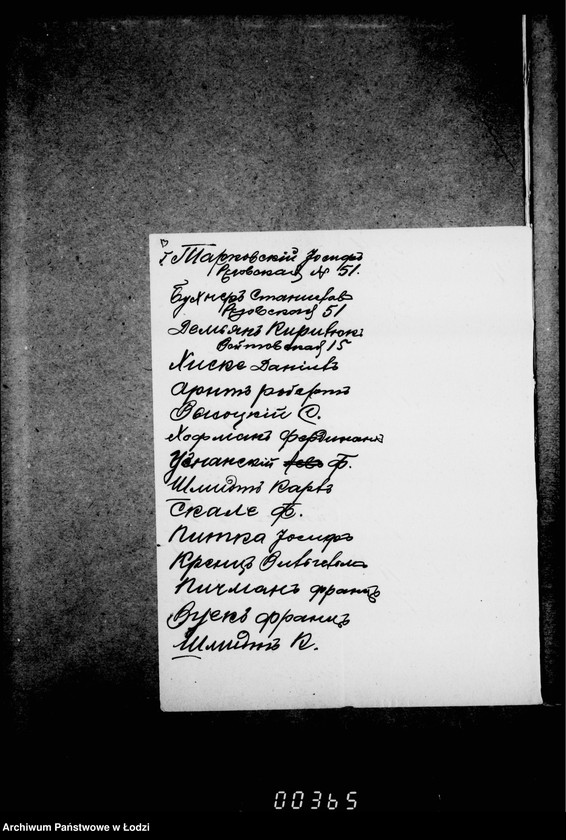 Тарковскій Іосифъ
Рговская № 51.
Бухнеръ Станиславъ
Рговская 51
Демьянъ Киривюкъ
Войтовская 15
Хиске Даніилъ
Арнтъ робертъ
Высоцкій С.
Хофманъ Фердинанъ
Уднанскій Ф.
Шмидтъ Карлъ
Скале Ф.
Питка Іосифъ
Кренцъ
Пичманъ францъ
Вуекъ францъ
Шмидтъ К.
00365
Archiwum Państwowe w Łodzi